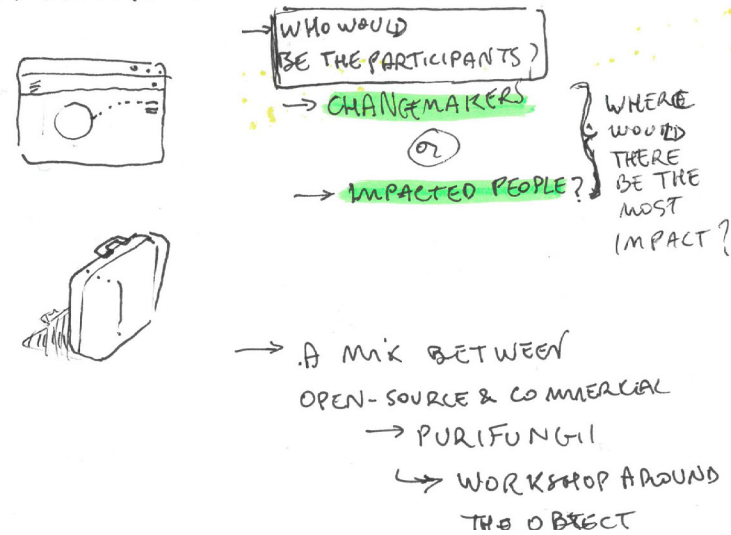 → WHO WOULD
BE THE PARTICIPANTS?
→ CHANGEMAKERS
OR
→ IMPACTED PEOPLE?
WHERE
WOULD
THERE
BE THE
MOST
IMPACT?
→ A MIX BETWEEN
OPEN-SOURCE & COMMERCIAL
→ PURIFUNGII
↳ WORKSHOP AROUND
THE OBJECT